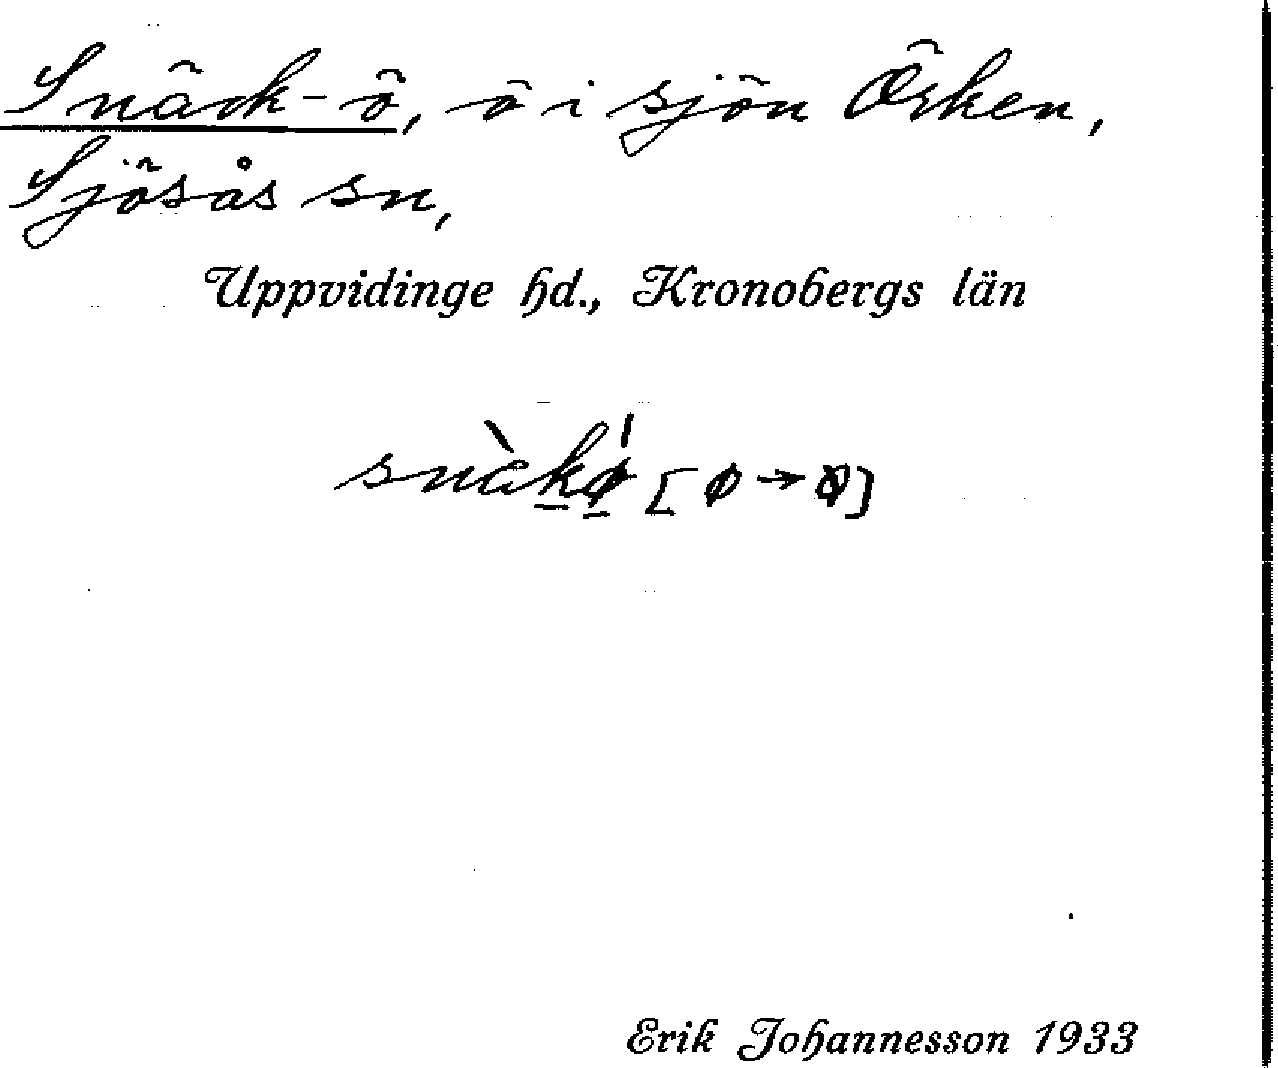 Snäck-ö, ö i sjön Örken,
Sjösås sn,
Uppvidinge hd., Kronobergs län
[ø → ]
Erik Johannesson 1933